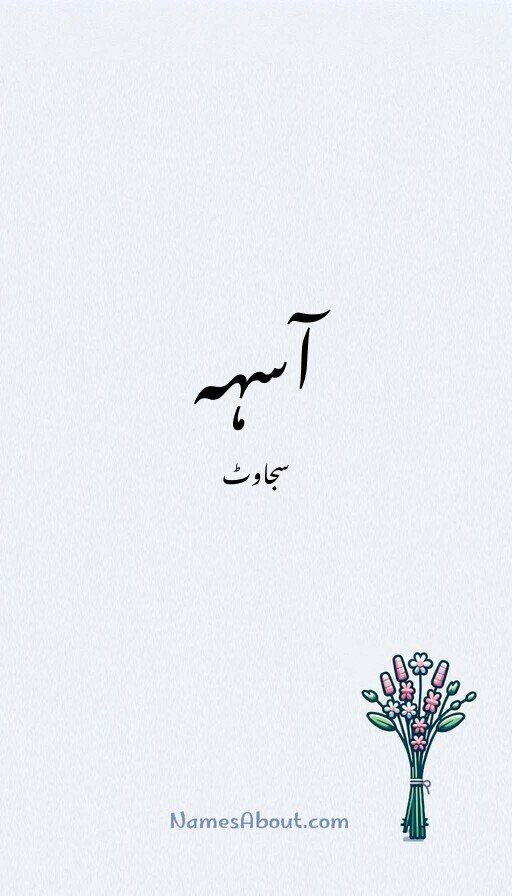 آسہہ
سجاوٹ
NamesAbout.com